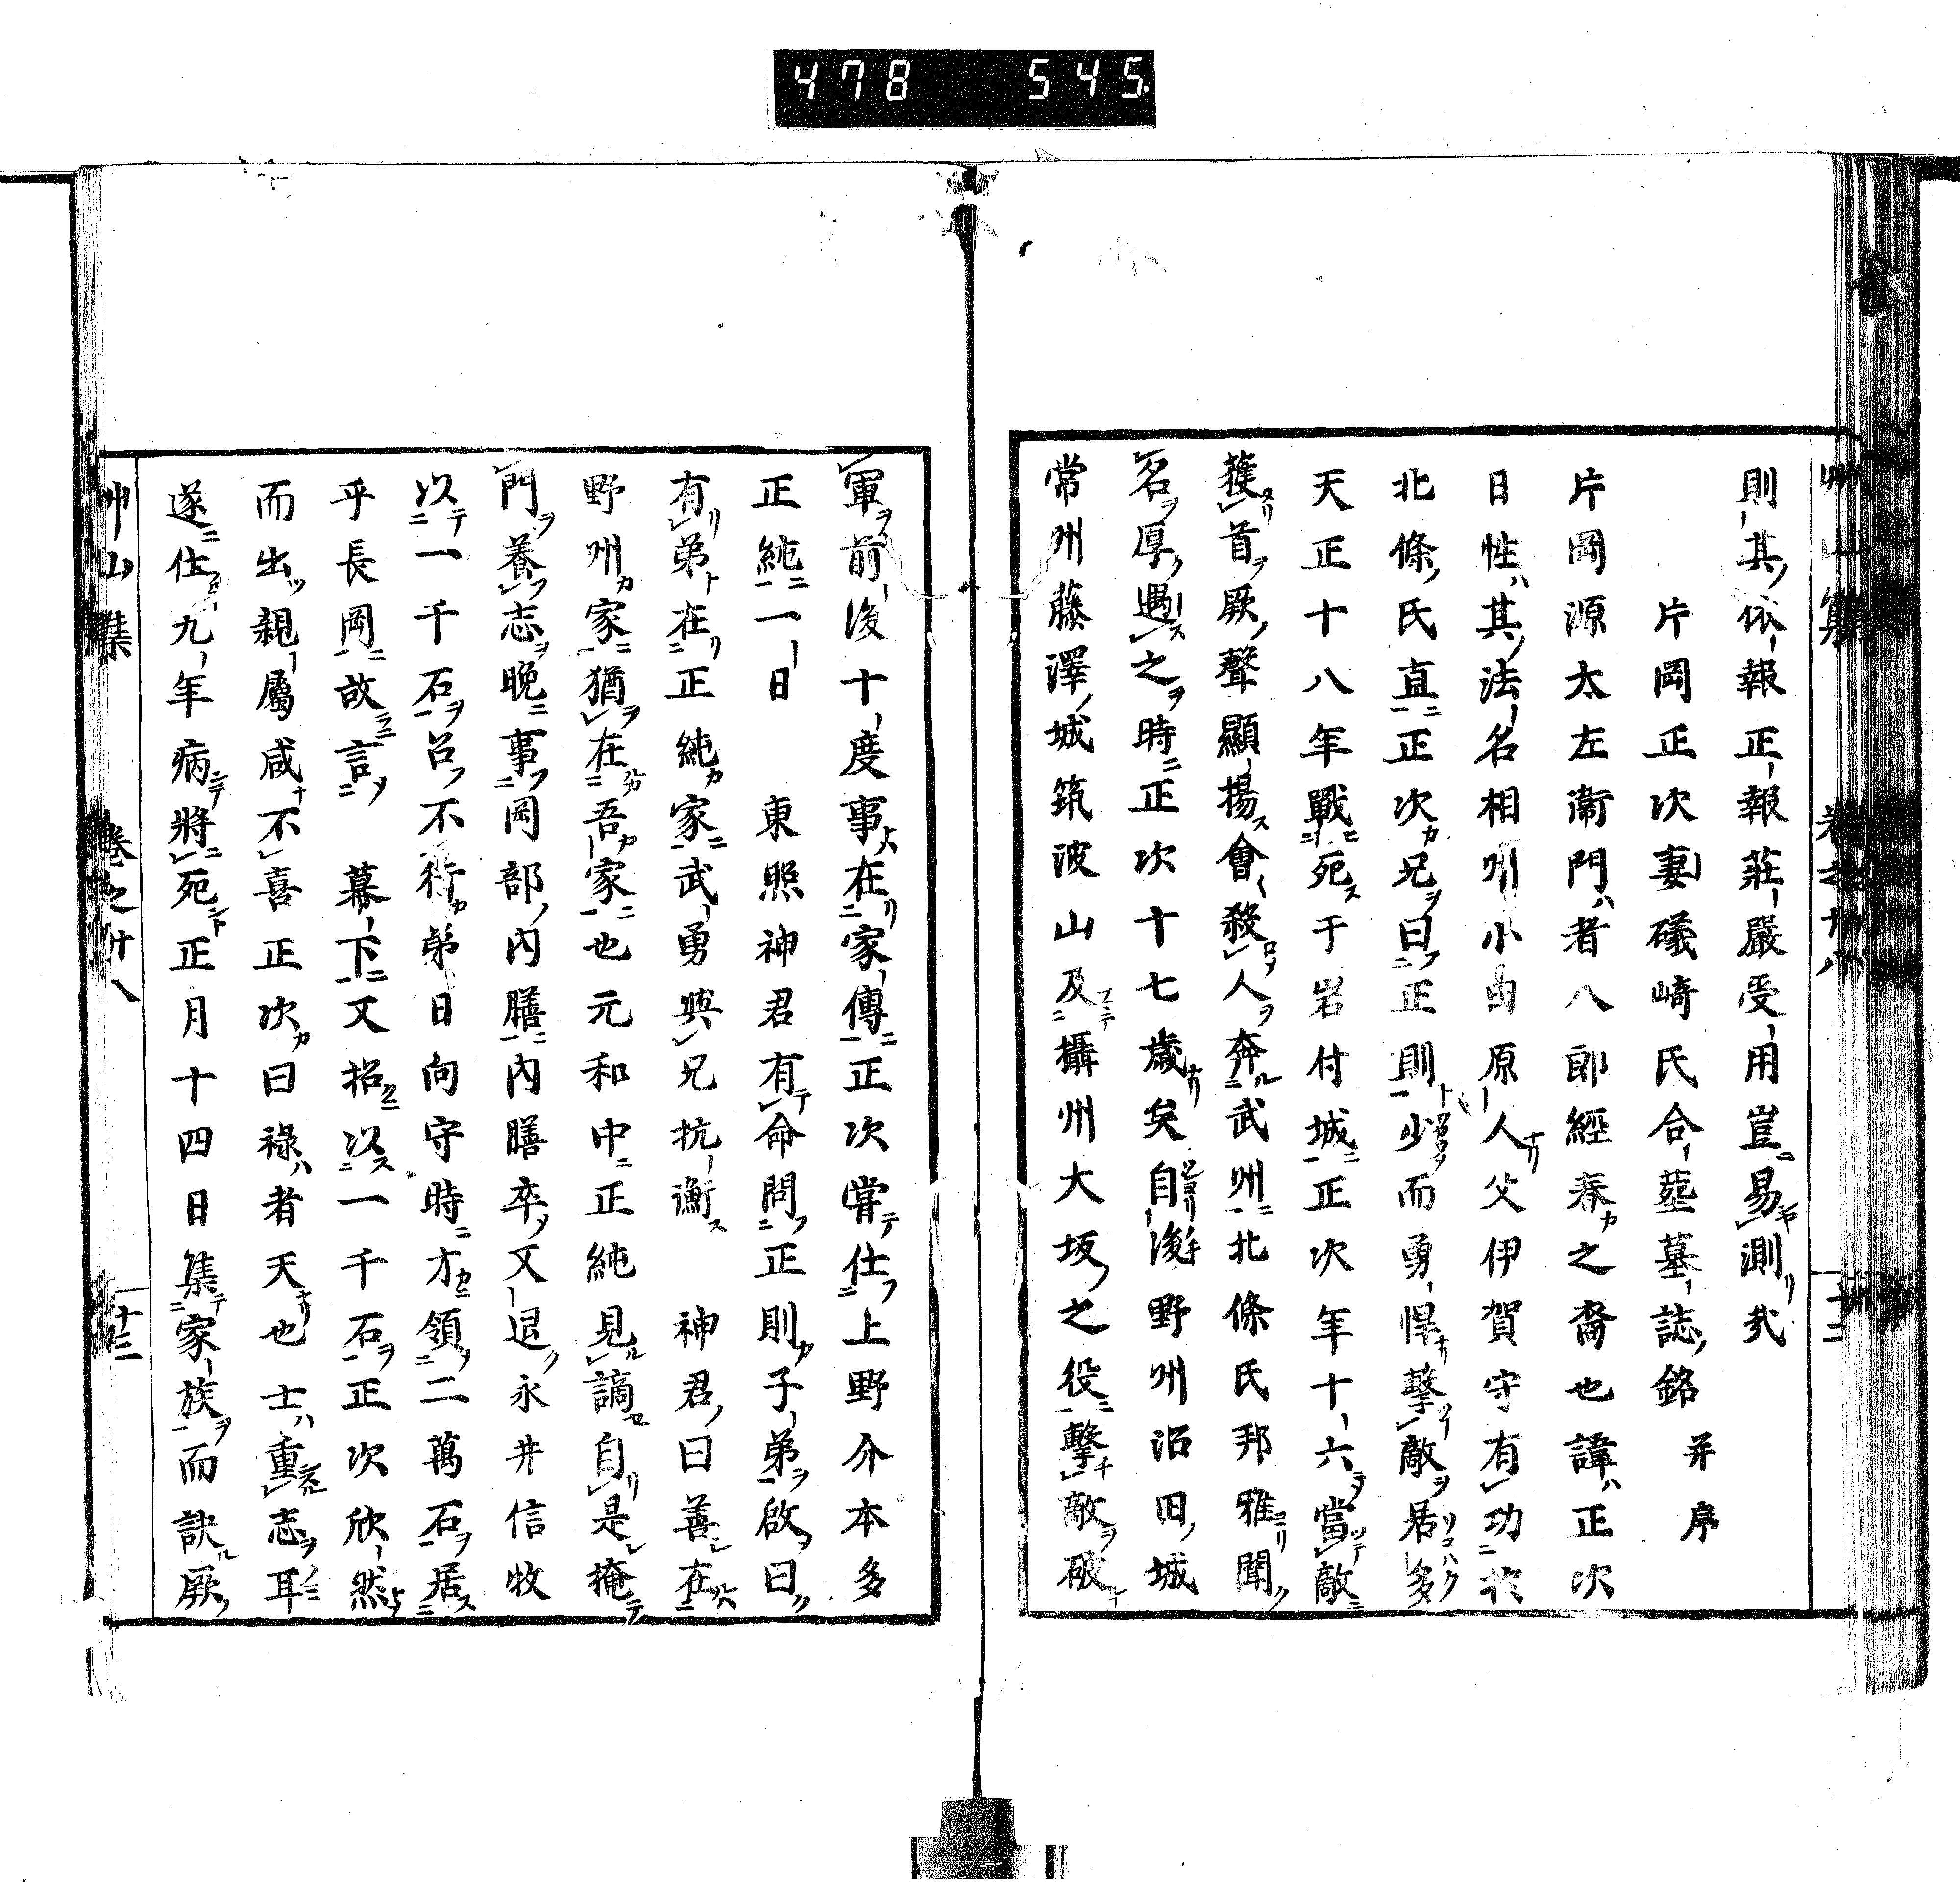 478 545
則其依報正報莊嚴受用豈易測矣
片岡正次妻礒崎氏合葬墓誌銘 并序
片岡源太左衛門者八郎經春之裔也諱正次
日性其法名相州小田原人父伊賀守有功於
北條氏直正次兄曰正則少而勇悍擊敵居多
天正十八年戰死于岩付城正次年十六當敵
獲首厥聲顯揚會殺人奔武州北條氏邦雅聞
名厚遇之時正次十七歲矣自後野州沼田城
常州藤澤城筑波山及攝州大坂之役擊敵破
軍前後十度事在家傳正次嘗仕上野介本多
正純一日 東照神君有命問正則子弟啟曰
有弟在正純家武勇與兄抗衡 神君曰善在
野州家猶在吾家也元和中正純見謫自是掩
門養志晚事岡部內膳內膳卒又退永井信牧
以一千石召不行弟日向守時才領二萬石居
乎長岡故言 幕下又招以一千石正次欣然
而出親屬咸不喜正次曰祿者天也士重志耳
遂仕九年病將死正月十四日集家族而訣厥
艸山集 卷之廿八 十三